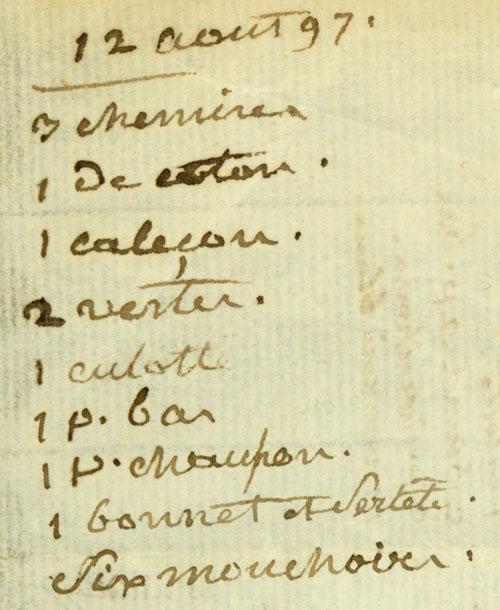 12 aout 97.
3 chemises
1 de coton.
1 caleçon.
2 vestes.
1 culotte
1 p. bas
1 p. chausson.
1 bonnet et serte tete.
Six mouchoirs.